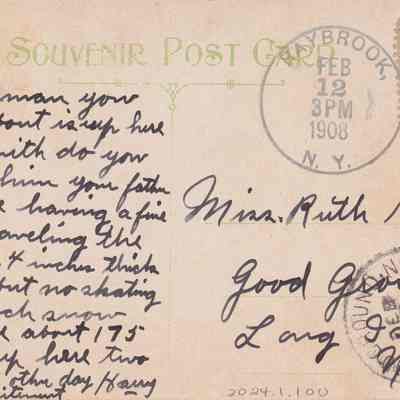 SOUVENIR POST CARD
MAYBROOK,
FEB
12
3PM
1908
N. Y.
man you
out is up here
ith do you
him your father
e having a fine
aveling the
4 inches thick
but no skating
ch snow
e about 175
up here two
other day Harry
itement
Miss. Ruth
Good Gro
Long
2024.1.100